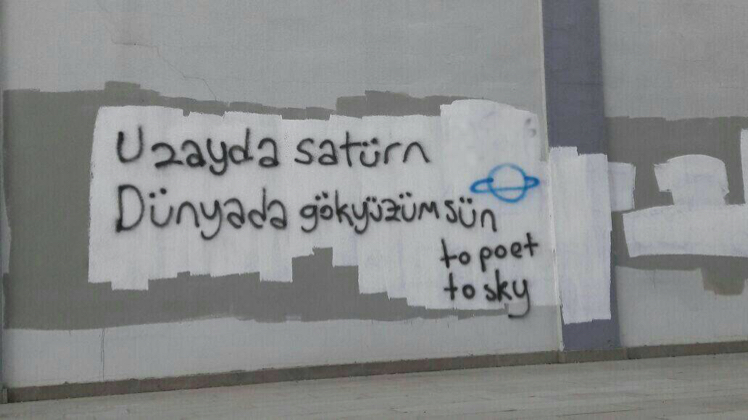 Uzayda satürn
Dünyada gökyüzümsün
to poet
to sky